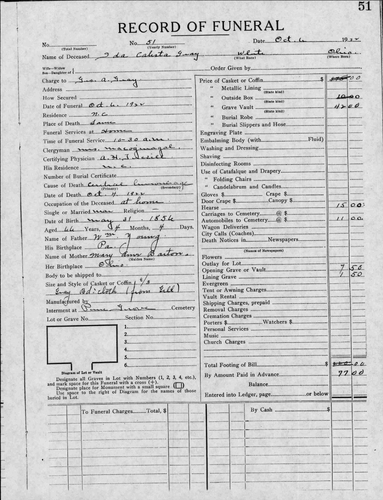 51
RECORD OF FUNERAL
No. 51 Date Oct. 6 1922
(Total Number) (Yearly Number)
Name of Deceased Ida Calista Gray White Ohio
(What Race) (Where Born)
Wife—Widow
Son—Daughter of
Order Given by
Charge to Geo. A. Gray
Address
How Secured
Date of Funeral Oct. 6. 1922
Residence N.C.
Place of Death Same
Funeral Services at Home
Time of Funeral Service 10:30 A.M.
Clergyman Mrs.
Certifying Physician A. H.
His Residence N.C.
Number of Burial Certificate
Cause of Death Cerebral
(Primary) (Secondary)
Date of Death Oct 4 1922
Occupation of the Deceased at home
Single or Married mar Religion
Date of Birth May 31 1856
Aged 66 Years, 4 Months, 4 Days.
Name of Father Wm
His Birthplace Pa.
Name of Mother Mary Ann Barton
(Maiden Name)
Her Birthplace Ohio
Body to be shipped to
Size and Style of Casket or Coffin 6/3
Gray
Manufactured by
Interment at Pine Grove Cemetery
Lot or Grave No. Section No.
1.
2.
3.
4.
5.
Diagram of Lot or Vault
Designate all Graves in Lot with Numbers (1, 2, 3, 4, etc.), and mark space for this Funeral with a cross (+).
Designate place for Monument with a small square
Use space to the right of Diagram for the names of those buried in Lot.
Price of Casket or Coffin
" Metallic Lining
(State Kind)
" Outside Box
(State Kind)
" Grave Vault 42 00
(State Kind)
" Burial Robe
" Burial Slippers and Hose
Engraving Plate
Embalming Body (with Fluid)
Washing and Dressing
Shaving
Disinfecting Rooms
Use of Catafalque and Drapery
" Folding Chairs
" Candelabrum and Candles
Gloves $ Crape $
Door Crape $ Canopy $
Hearse 15 00
Carriages to Cemetery @ $
Automobiles to Cemetery @ $ 11 00
Wagon Deliveries
City Calls (Coaches)
Death Notices in Newspapers
(Names of Newspapers)
Flowers
Outlay for Lot
Opening Grave or Vault 7 50
Lining Grave 1 50
Evergreen
Tent or Awning Charges
Vault Rental
Shipping Charges, prepaid
Removal Charges
Cremation Charges
Porters $ Watchers $
Personal Services
Music
Church Charges
Total Footing of Bill
By Amount Paid in Advance 77 00
Balance
Entered into Ledger, page or below
To Funeral Charges, Total $
By Cash $